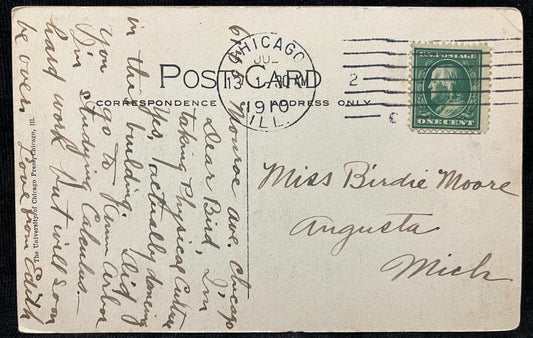 POST CARD
CORRESPONDENCE
ADDRESS ONLY
CHICAGO
JUL
13
10 AM
1910
ILL.
2
U.S. POSTAGE
ONE CENT
Miss Birdie Moore
Augusta
Mich
Monroe Ave. Chicago
Dear Bird, I'm
taking Physical Culture
Yes, actually dancing
in the building. Did
you go to Ann Arbor
I'm studying Calculus.—
hard work but will soon
be over. Love from Edith
The University of Chicago Press, Chicago, Ill.